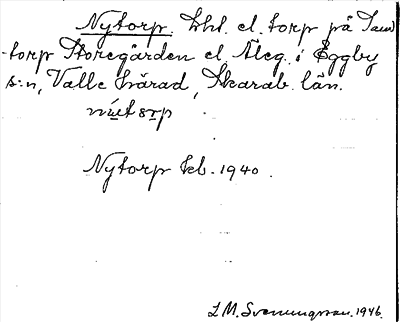 Nytorp. Lht. el. torp på Jan
torp Storegården el. Äleg. i Eggby
s:n, Valle härad, Skarab. län.
Nytorp kb. 1940.
L M. Svenungsson. 1946.